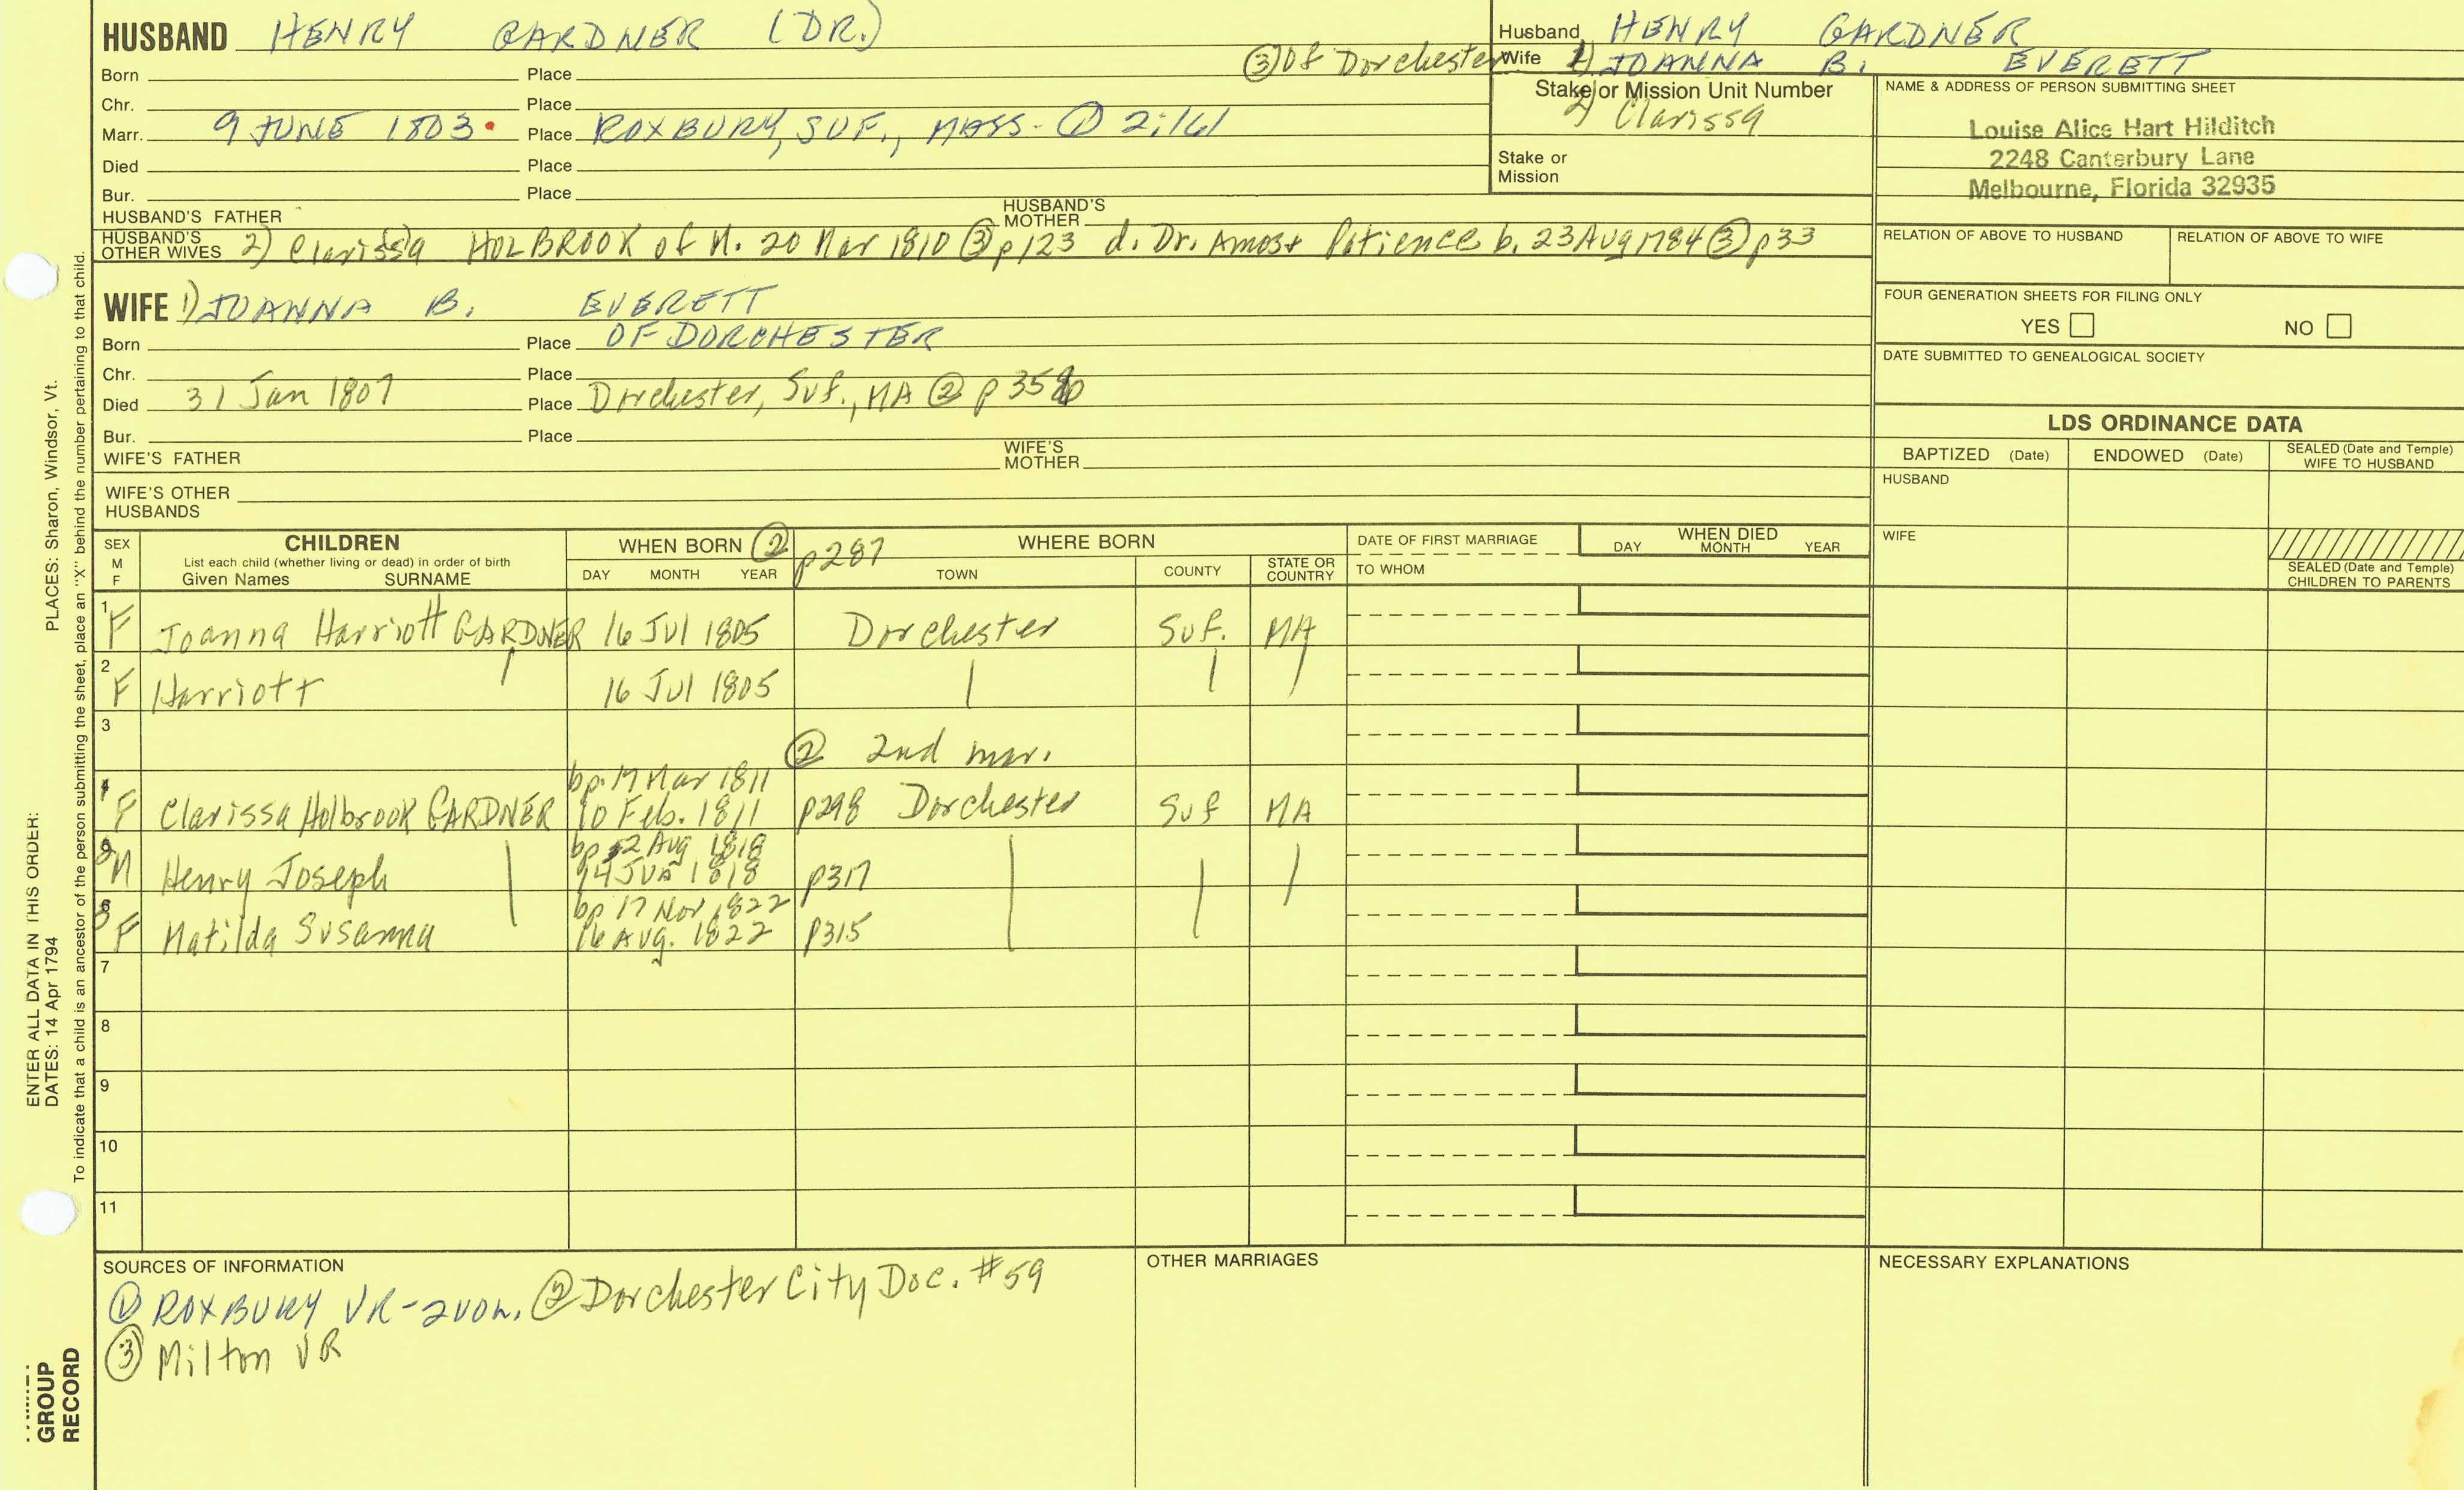 HUSBAND HENRY GARDNER (DR.)
Husband HENRY GARDNER
③ Of Dorchester Wife 1) JOANNA B. EVERETT
Born Place
Stake or Mission Unit Number
2) Clarissa
NAME & ADDRESS OF PERSON SUBMITTING SHEET
Louise Alice Hart Hilditch
2248 Canterbury Lane
Melbourne, Florida 32935
Chr. Place
Marr. 9 JUNE 1803 Place ROXBURY, SUF., MASS. ① 2:161
Died Place
Stake or Mission
Bur. Place
HUSBAND'S FATHER HUSBAND'S MOTHER
HUSBAND'S OTHER WIVES 2) Clarissa HOLBROOK of M. 20 Mar 1810 ③ p123 d. Dr. Amos + Patience b. 23 Aug 1784 ③ p33
RELATION OF ABOVE TO HUSBAND RELATION OF ABOVE TO WIFE
WIFE 1) JOANNA B. EVERETT
FOUR GENERATION SHEETS FOR FILING ONLY
YES NO
Born Place OF DORCHESTER
DATE SUBMITTED TO GENEALOGICAL SOCIETY
Chr. Place
Died 31 Jan 1807 Place Dorchester, Suf., MA ② p
Bur. Place
WIFE'S FATHER WIFE'S MOTHER
WIFE'S OTHER HUSBANDS
LDS ORDINANCE DATA
BAPTIZED (Date) ENDOWED (Date) SEALED (Date and Temple) WIFE TO HUSBAND
HUSBAND
WIFE
SEALED (Date and Temple) CHILDREN TO PARENTS
SEX M F
CHILDREN
List each child (whether living or dead) in order of birth
Given Names SURNAME
WHEN BORN ② p287
DAY MONTH YEAR
WHERE BORN
TOWN COUNTY STATE OR COUNTRY
DATE OF FIRST MARRIAGE
TO WHOM
WHEN DIED
DAY MONTH YEAR
1 F Joanna Harriott GARDNER 16 Jul 1805 Dorchester Suf. MA
2 F Harriott 16 Jul 1805
3
② 2nd mar.
bp. 17 Mar 1811
4 F Clarissa Holbrook GARDNER 10 Feb. 1811 p298 Dorchester Suf MA
bp 2 Aug 1818
5 M Henry Joseph 14 JUN 1818 p317
bp 17 Nov 1822
6 F Matilda Susanna 16 Aug. 1822 p315
7
8
9
10
11
SOURCES OF INFORMATION
① ROXBURY VR-2VOL. ② Dorchester City Doc. #59
③ Milton VR
OTHER MARRIAGES
NECESSARY EXPLANATIONS
ENTER ALL DATA IN THIS ORDER:
DATES: 14 Apr 1794 PLACES: Sharon, Windsor, Vt.
To indicate that a child is an ancestor of the person submitting the sheet, place an "X" behind the number pertaining to that child.
GROUP
RECORD